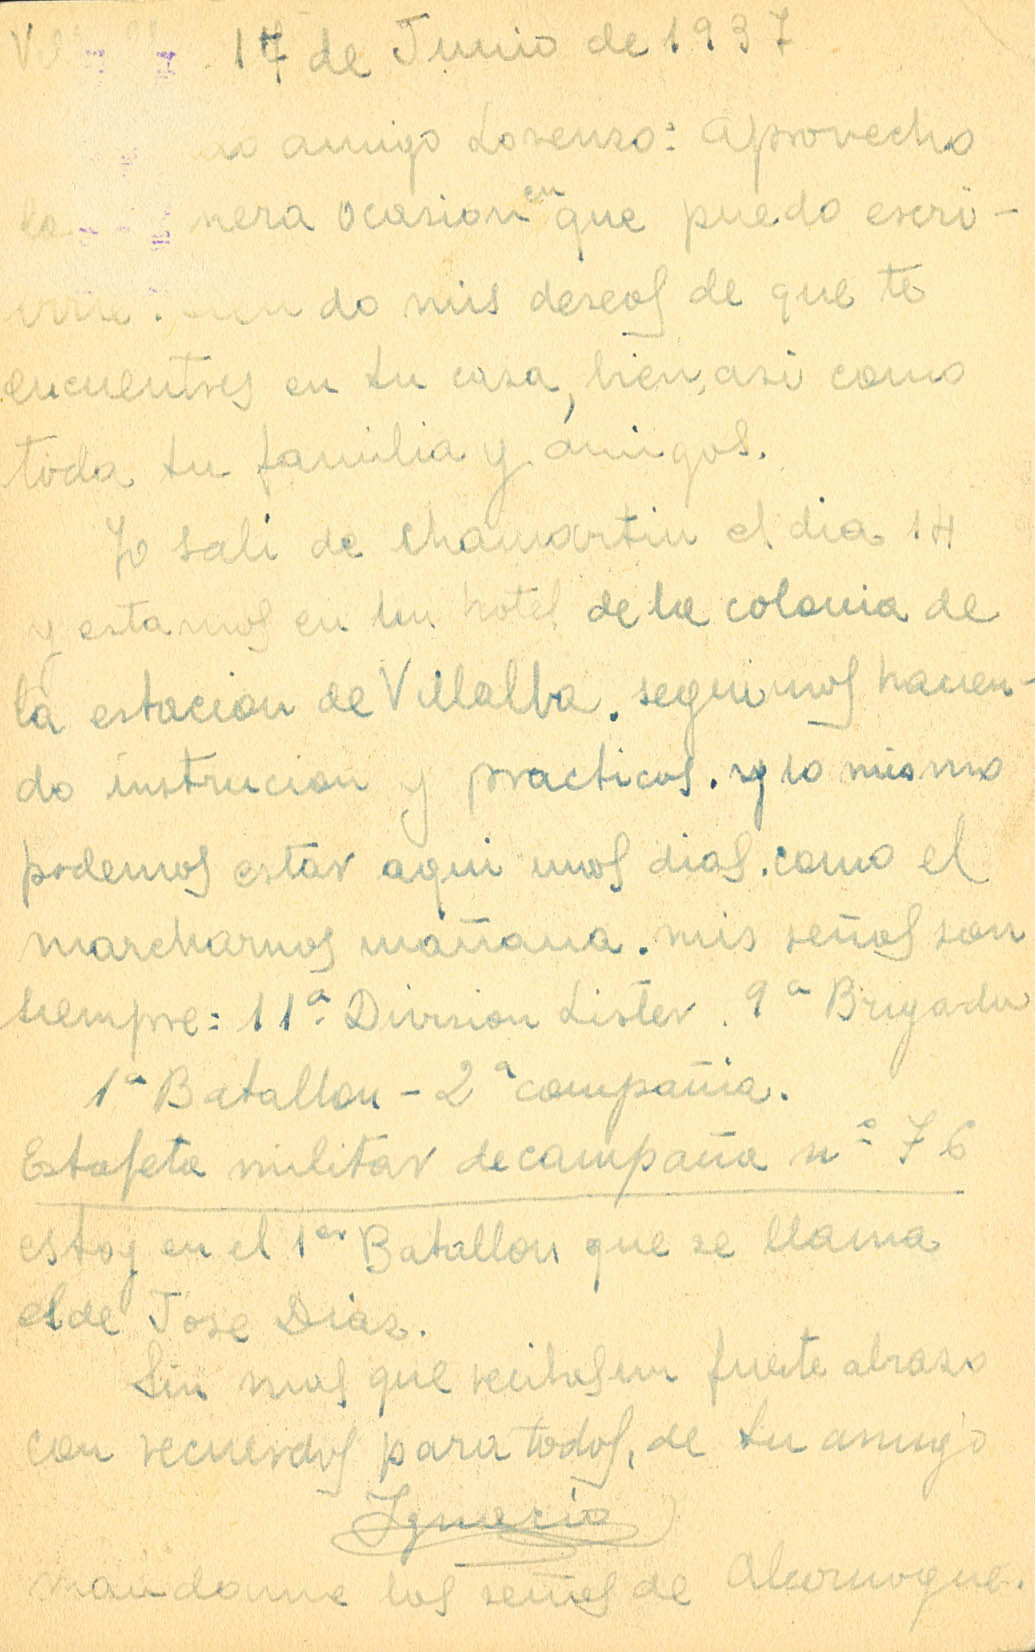 17 de Junio de 1937
amigo Lorenzo: aprovecho
la nera ocasion en que puedo escri-
do mis deseos de que te
encuentres en tu casa, bien, asi como
toda tu familia y amigos.
Yo sali de Chamartin el dia 14
y estamos en un hotel de la colonia de
la estacion de Villalba. seguimos hacien-
do instrucion y practicas. y lo mismo
podemos estar aqui unos dias. como el
marcharnos mañana. mis señas son
siempre: 11ª Division Lister. 9ª Brigada
1º Batallon - 2ª compañia.
Estafeta militar de campaña nº 76
estoy en el 1er Batallon que se llama
el de Jose Diaz.
Sin mas que recibas un fuerte abrazo
con recuerdos para todos, de tu amigo
Ignacio
mandame las señas de Alcornoque.